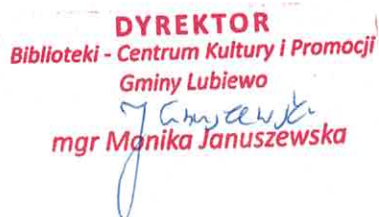 DYREKTOR
Biblioteki - Centrum Kultury i Promocji
Gminy Lubiewo
mgr Monika Januszewska